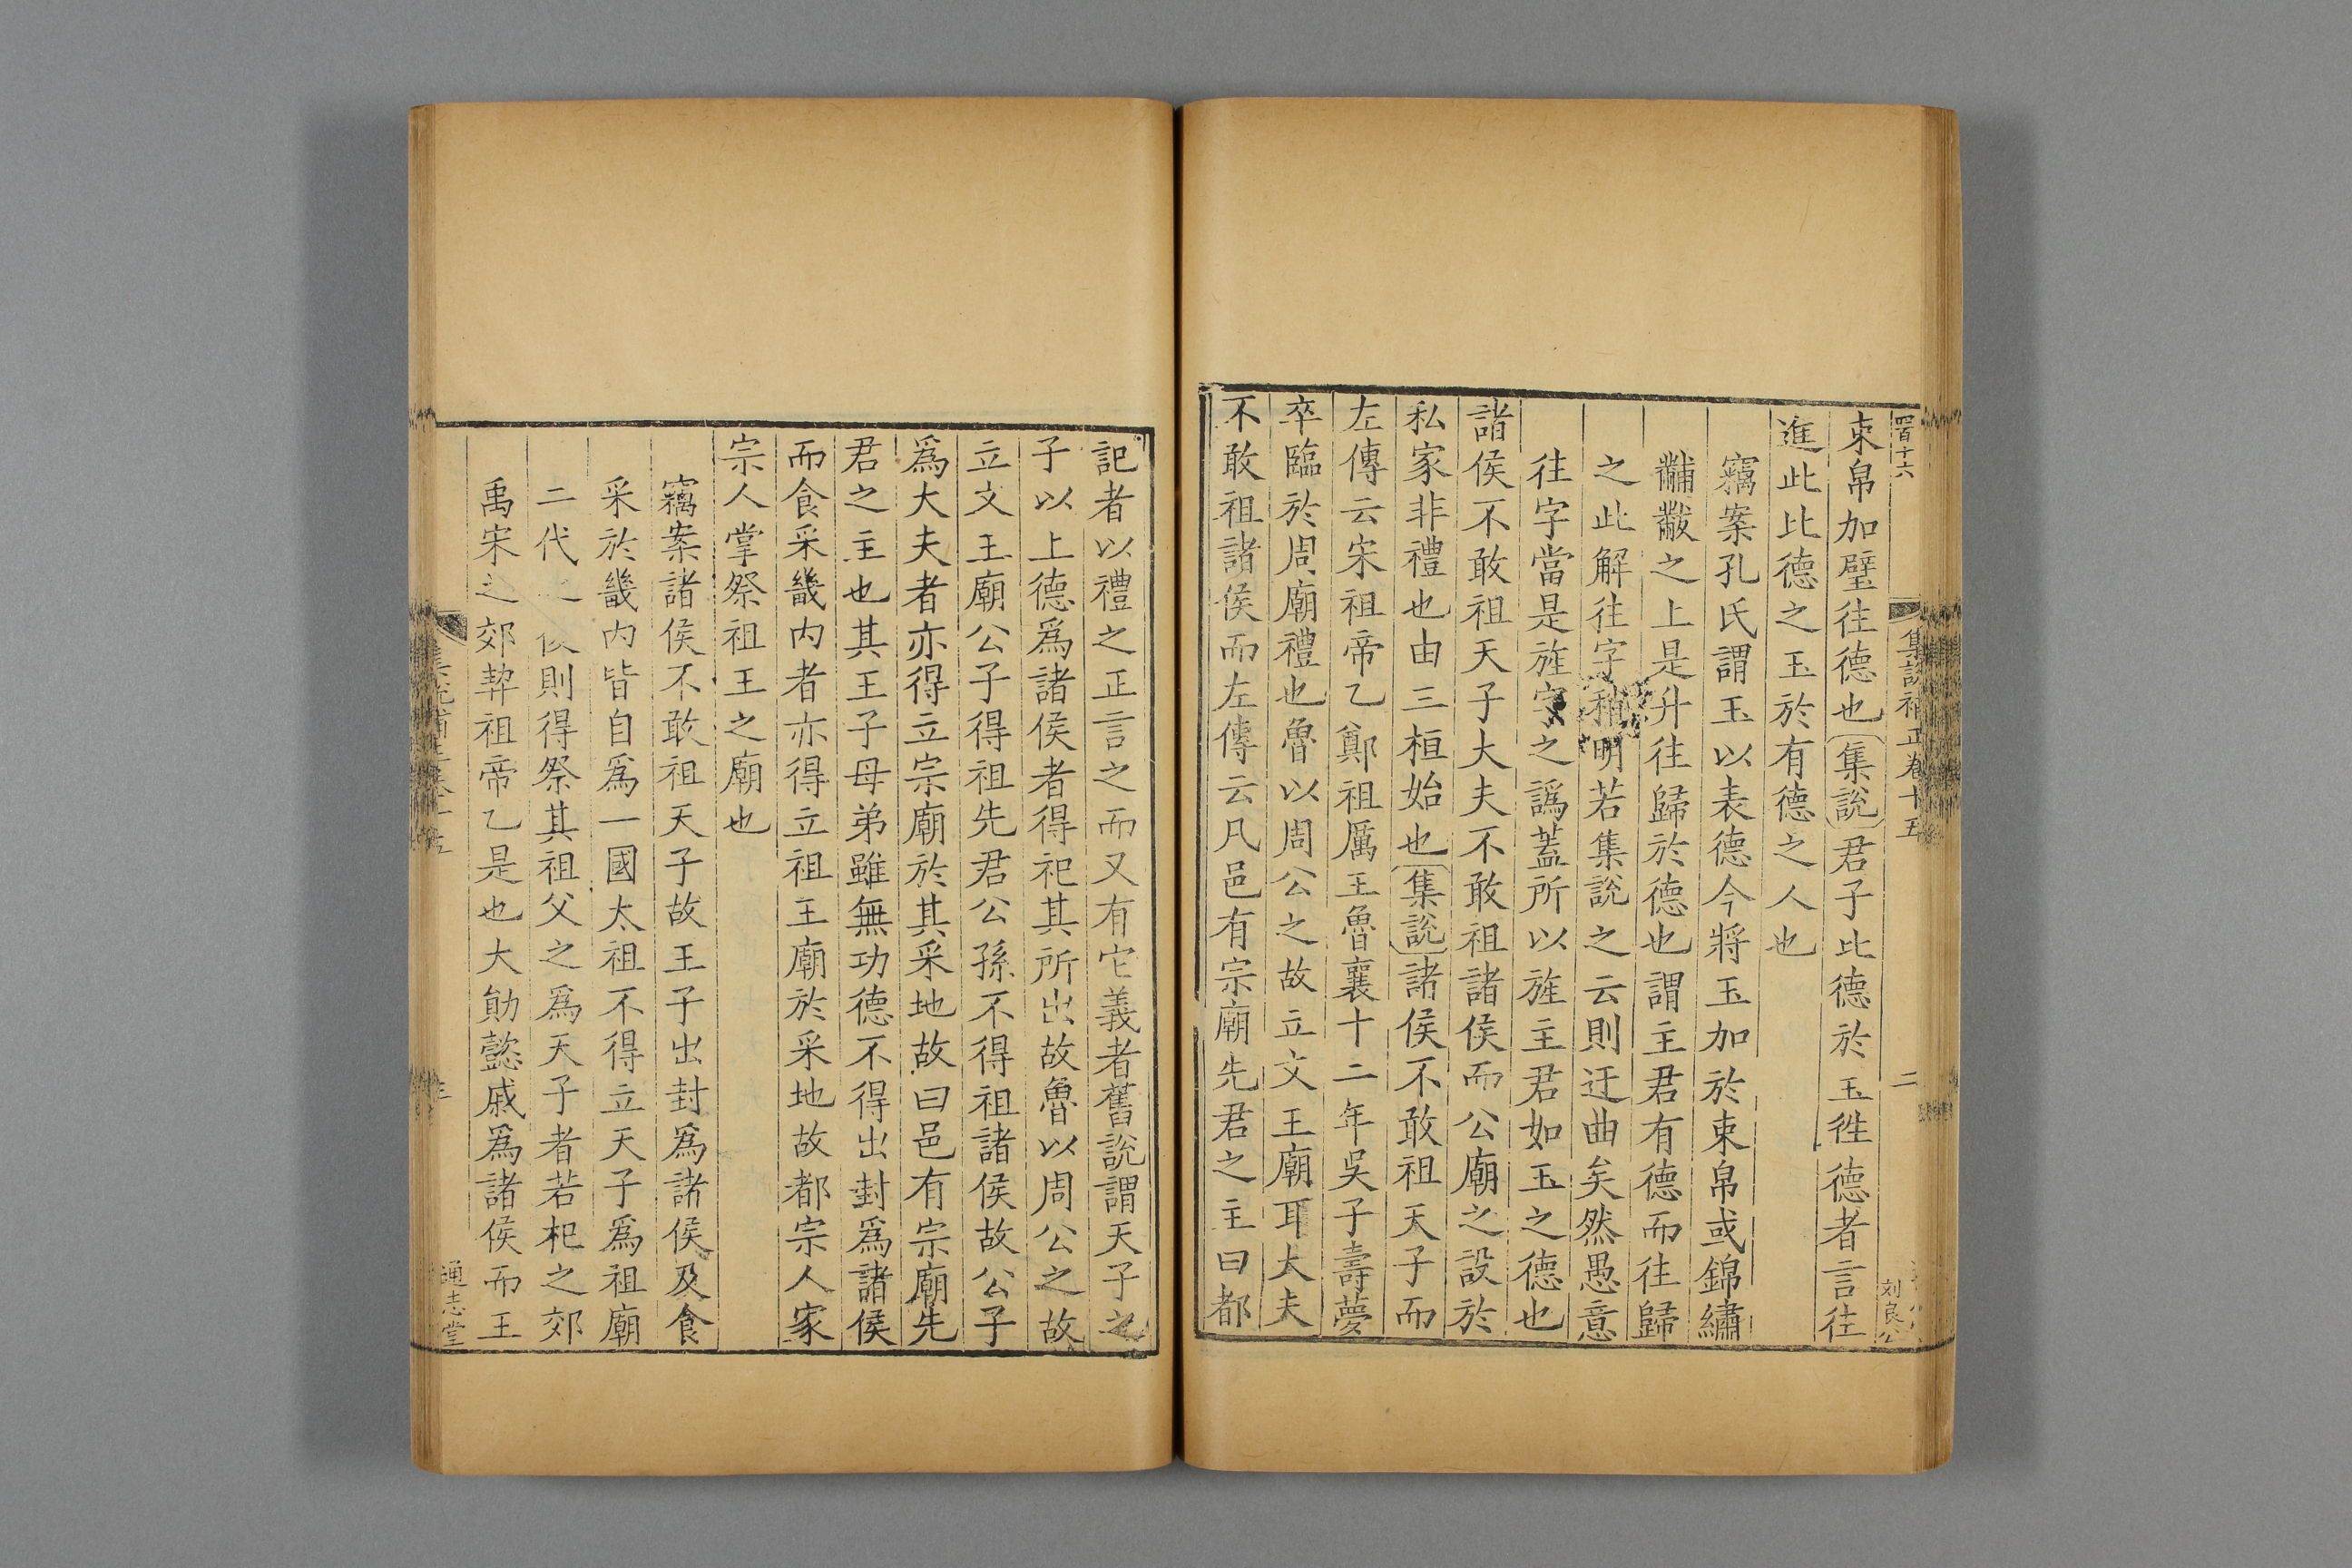 四百十六
集說補正卷十五
二
刘良公
束帛加璧往德也集說君子比德於玉往德者言往
進此比德之玉於有德之人也
竊案孔氏謂玉以表德今將玉加於束帛或錦繡
黼黻之上是升往歸於德也謂主君有德而往歸
之此解往字稍明若集說之云則迂曲矣然愚意
往字當是旌字之譌蓋所以旌主君如玉之德也
諸侯不敢祖天子大夫不敢祖諸侯而公廟之設於
私家非禮也由三桓始也集說諸侯不敢祖天子而
左傳云宋祖帝乙鄭祖厲王魯襄十二年吳子壽夢
卒臨於周廟禮也魯以周公之故立文王廟耳大夫
不敢祖諸侯而左傳云凡邑有宗廟先君之主曰都
記者以禮之正言之而又有它義者舊說謂天子之
子以上德爲諸侯者得祀其所出故魯以周公之故
立文王廟公子得祖先君公孫不得祖諸侯故公子
爲大夫者亦得立宗廟於其采地故曰邑有宗廟先
君之主也其王子母弟雖無功德不得出封爲諸侯
而食采畿內者亦得立祖王廟於采地故都宗人家
宗人掌祭祖王之廟也
竊案諸侯不敢祖天子故王子出封爲諸侯及食
采於畿內皆自爲一國太祖不得立天子爲祖廟
二代之後則得祭其祖父之爲天子者若杞之郊
禹宋之郊契祖帝乙是也大勛懿戚爲諸侯而王
集說補正卷十五
三
通志堂